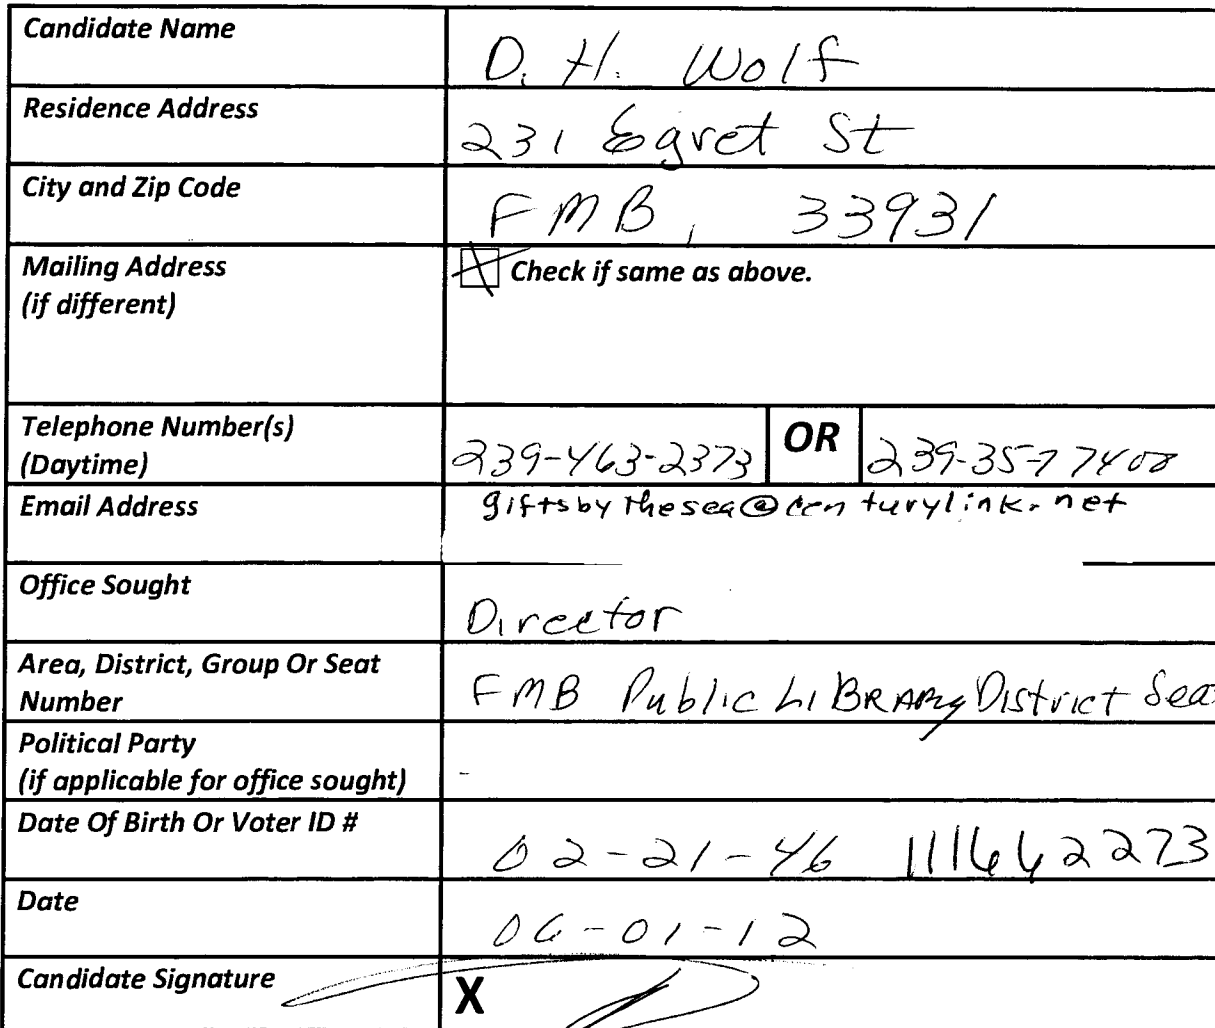 Candidate Name D. H. Wolf
Residence Address 231 Egret St
City and Zip Code FMB, 33931
Mailing Address
(if different)
Check if same as above.
Telephone Number(s)
(Daytime)
239-463-2373 OR 239-357 7408
Email Address giftsbythesea@centurylink.net
Office Sought Director
Area, District, Group Or Seat
Number
FMB Public LiBRARy District Sea
Political Party
(if applicable for office sought)
-
Date Of Birth Or Voter ID # 02-21-46 111662273
Date 06-01-12
Candidate Signature X